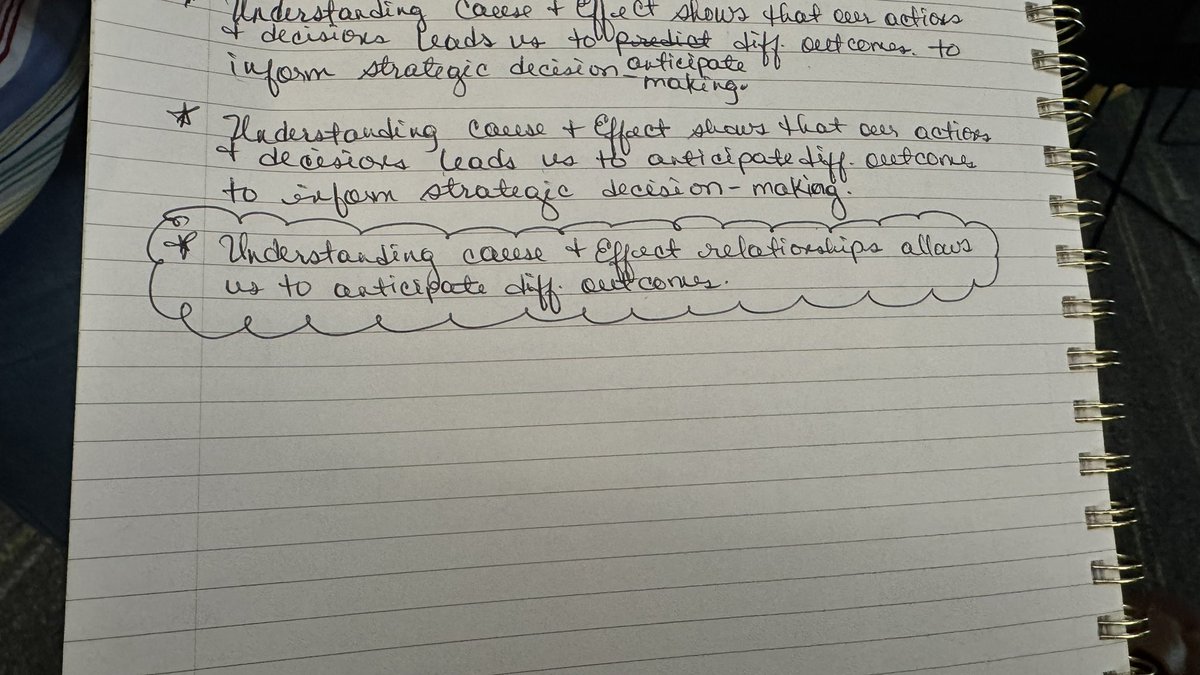 Understanding Cause + Effect shows that our actions
+ decisions leads us to predict diff. outcomes. to
anticipate
inform strategic decision-making.
* Understanding cause + Effect shows that our actions
+ decisions leads us to anticipate diff. outcomes
to inform strategic decision-making.
* Understanding cause + Effect relationships allows
us to anticipate diff. outcomes.